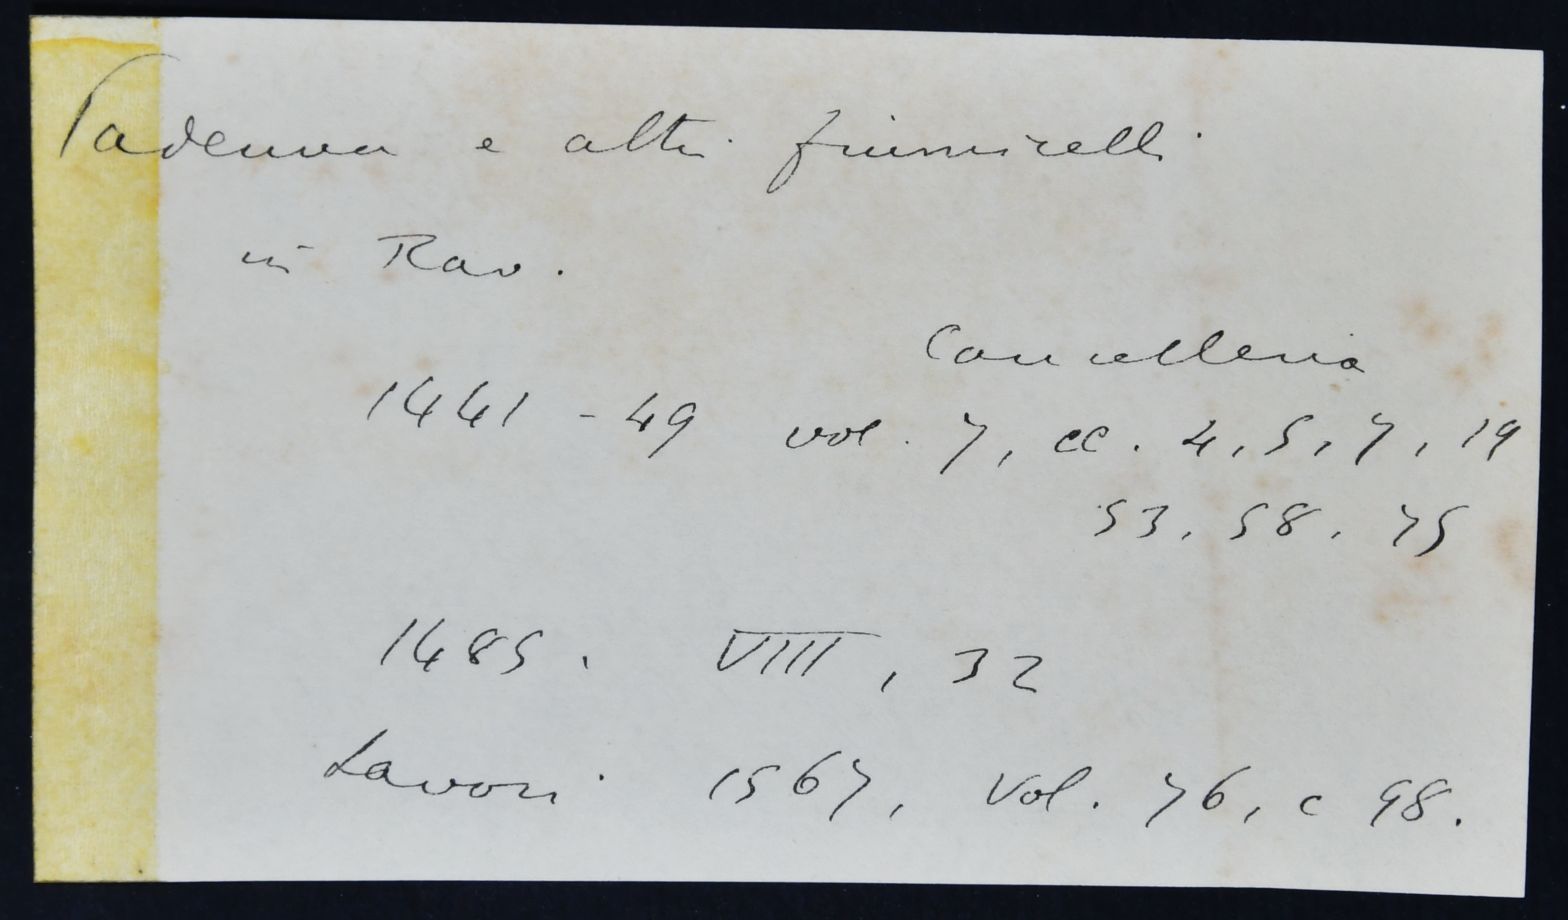 Padenna e altri fiumicelli
in Rav.
Cancelleria
1441-49 vol. 7, cc. 4, 5, 7, 19
53, 58, 75
1485. VIIII, 32
Lavori 1567, Vol. 76, c 98.